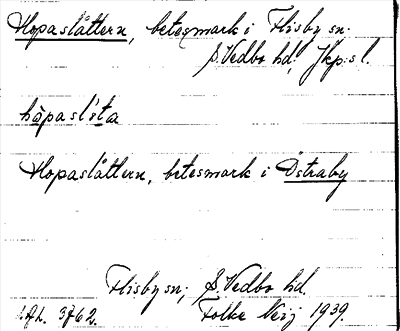 Hopaslåttern, betesmark i Flisby sn.
S. Vedbo hd. Jkp:s l.
håpaslsta
Hopaslåttern, betesmark i Östraby
Flisby sn, S. Vedbo hd.
3762. Folke Neij 1939.